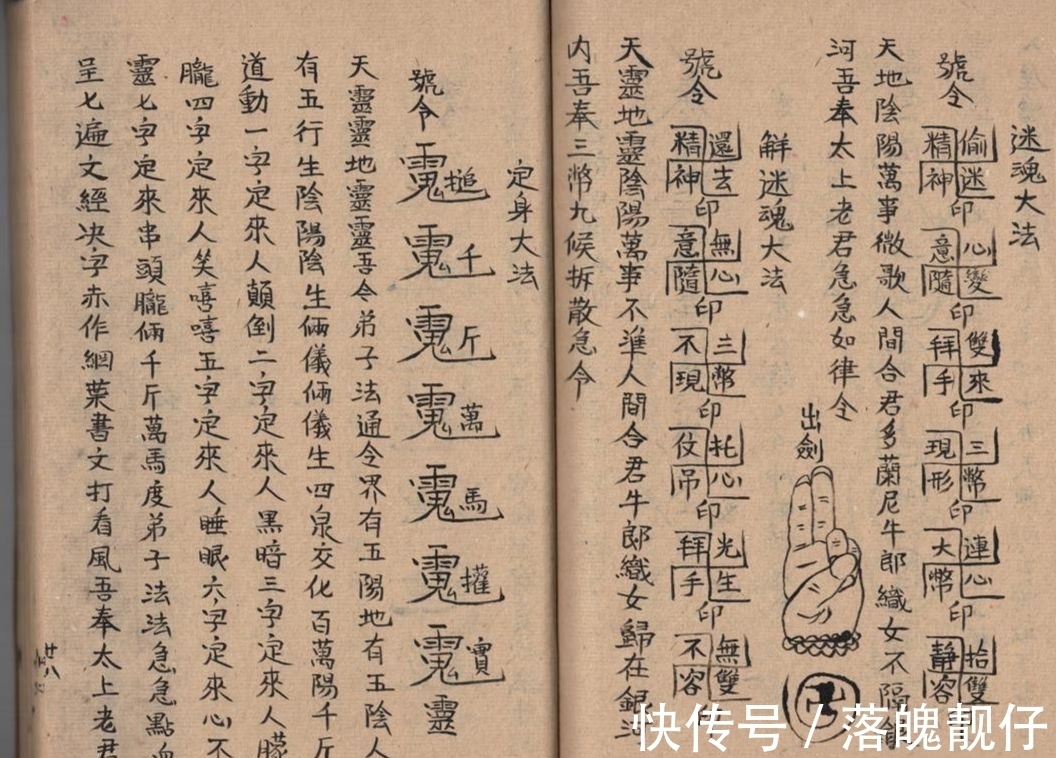 迷魂大法
號令 偷迷精神印 心變意隨印 雙來拜手印 三幣現形印 連心大幣印 拾雙靜容印
天地陰陽萬事微歌人間合君多蘭尼牛郎織女不隔銀
河吾奉太上老君急急如律令
出劍
解迷魂大法
號令 還去精神印 無心意隨印 三幣不現印 托心仗吊印 光生拜手印 無雙不容印
天靈地靈陰陽萬事不準人間合君牛郎織女歸在銀河
内吾奉三幣九候拆散急令
定身大法
號令 千 斤 萬 馬 靈
天靈靈地靈靈吾令弟子法通令界有五陽地有五陰人
有五行生陰陽陰生倆儀倆儀生四泉交化百萬陽千斤
道動一字定來人顛倒二字定來人黑暗三字定來人朦
朧四字定來人笑嘻嘻五字定來人睡眠六字定來心不
靈七字定來串頭朧倆千斤萬馬度弟子法法急急點血
呈七遍文經决字赤作網葉書文打看風吾奉太上老君
廿八
快传号/落魄靓仔